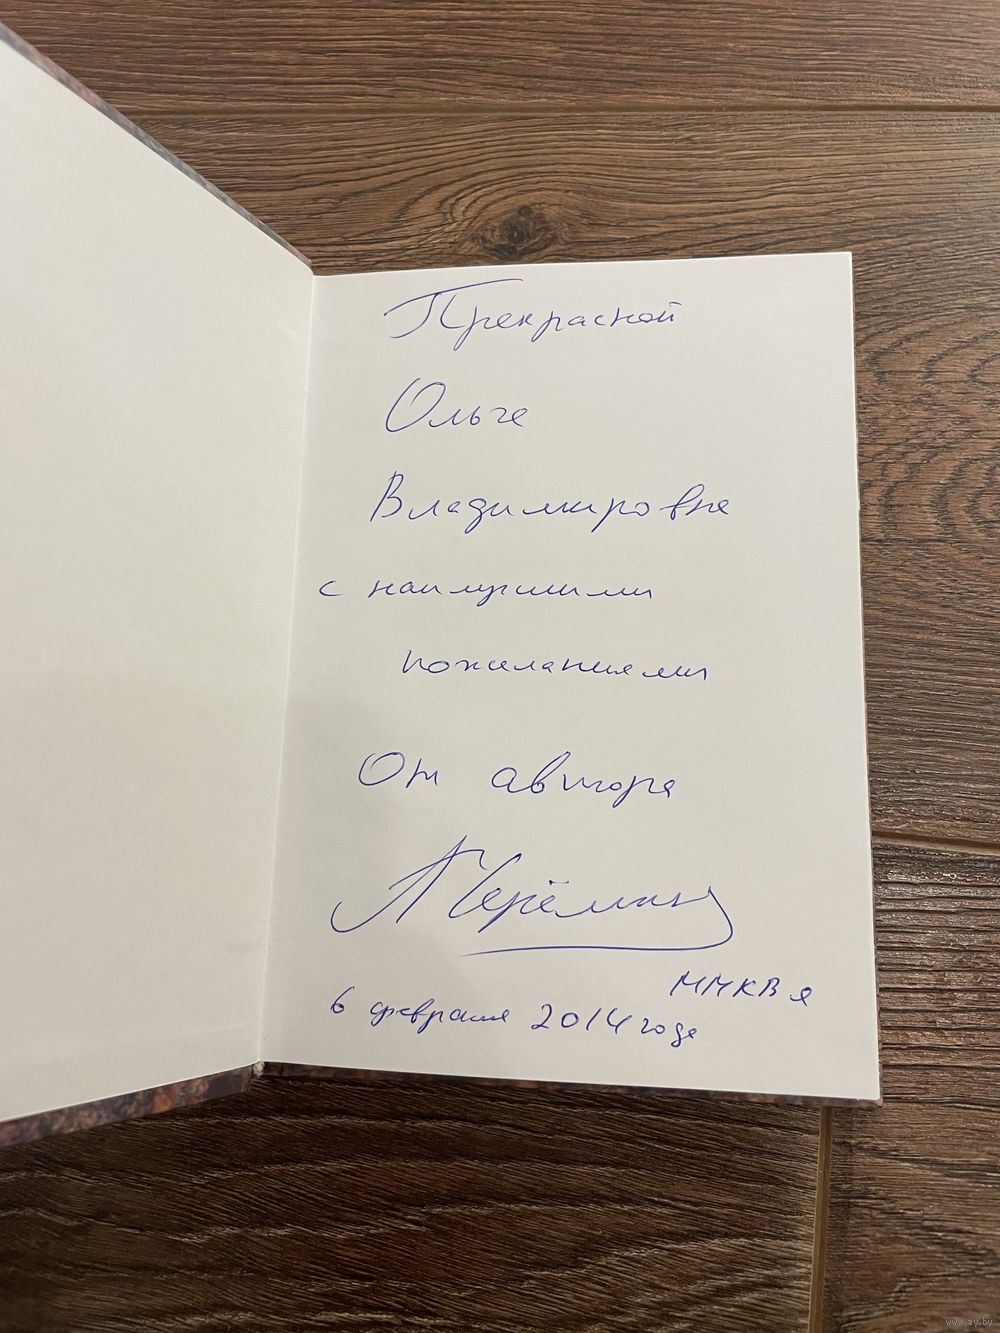 Прекрасной
Ольге
Владимировне
с наилучшими
пожеланиями
От автора
А Черёмин
ММКВЯ
6 февраля 2014 года
www.ay.by